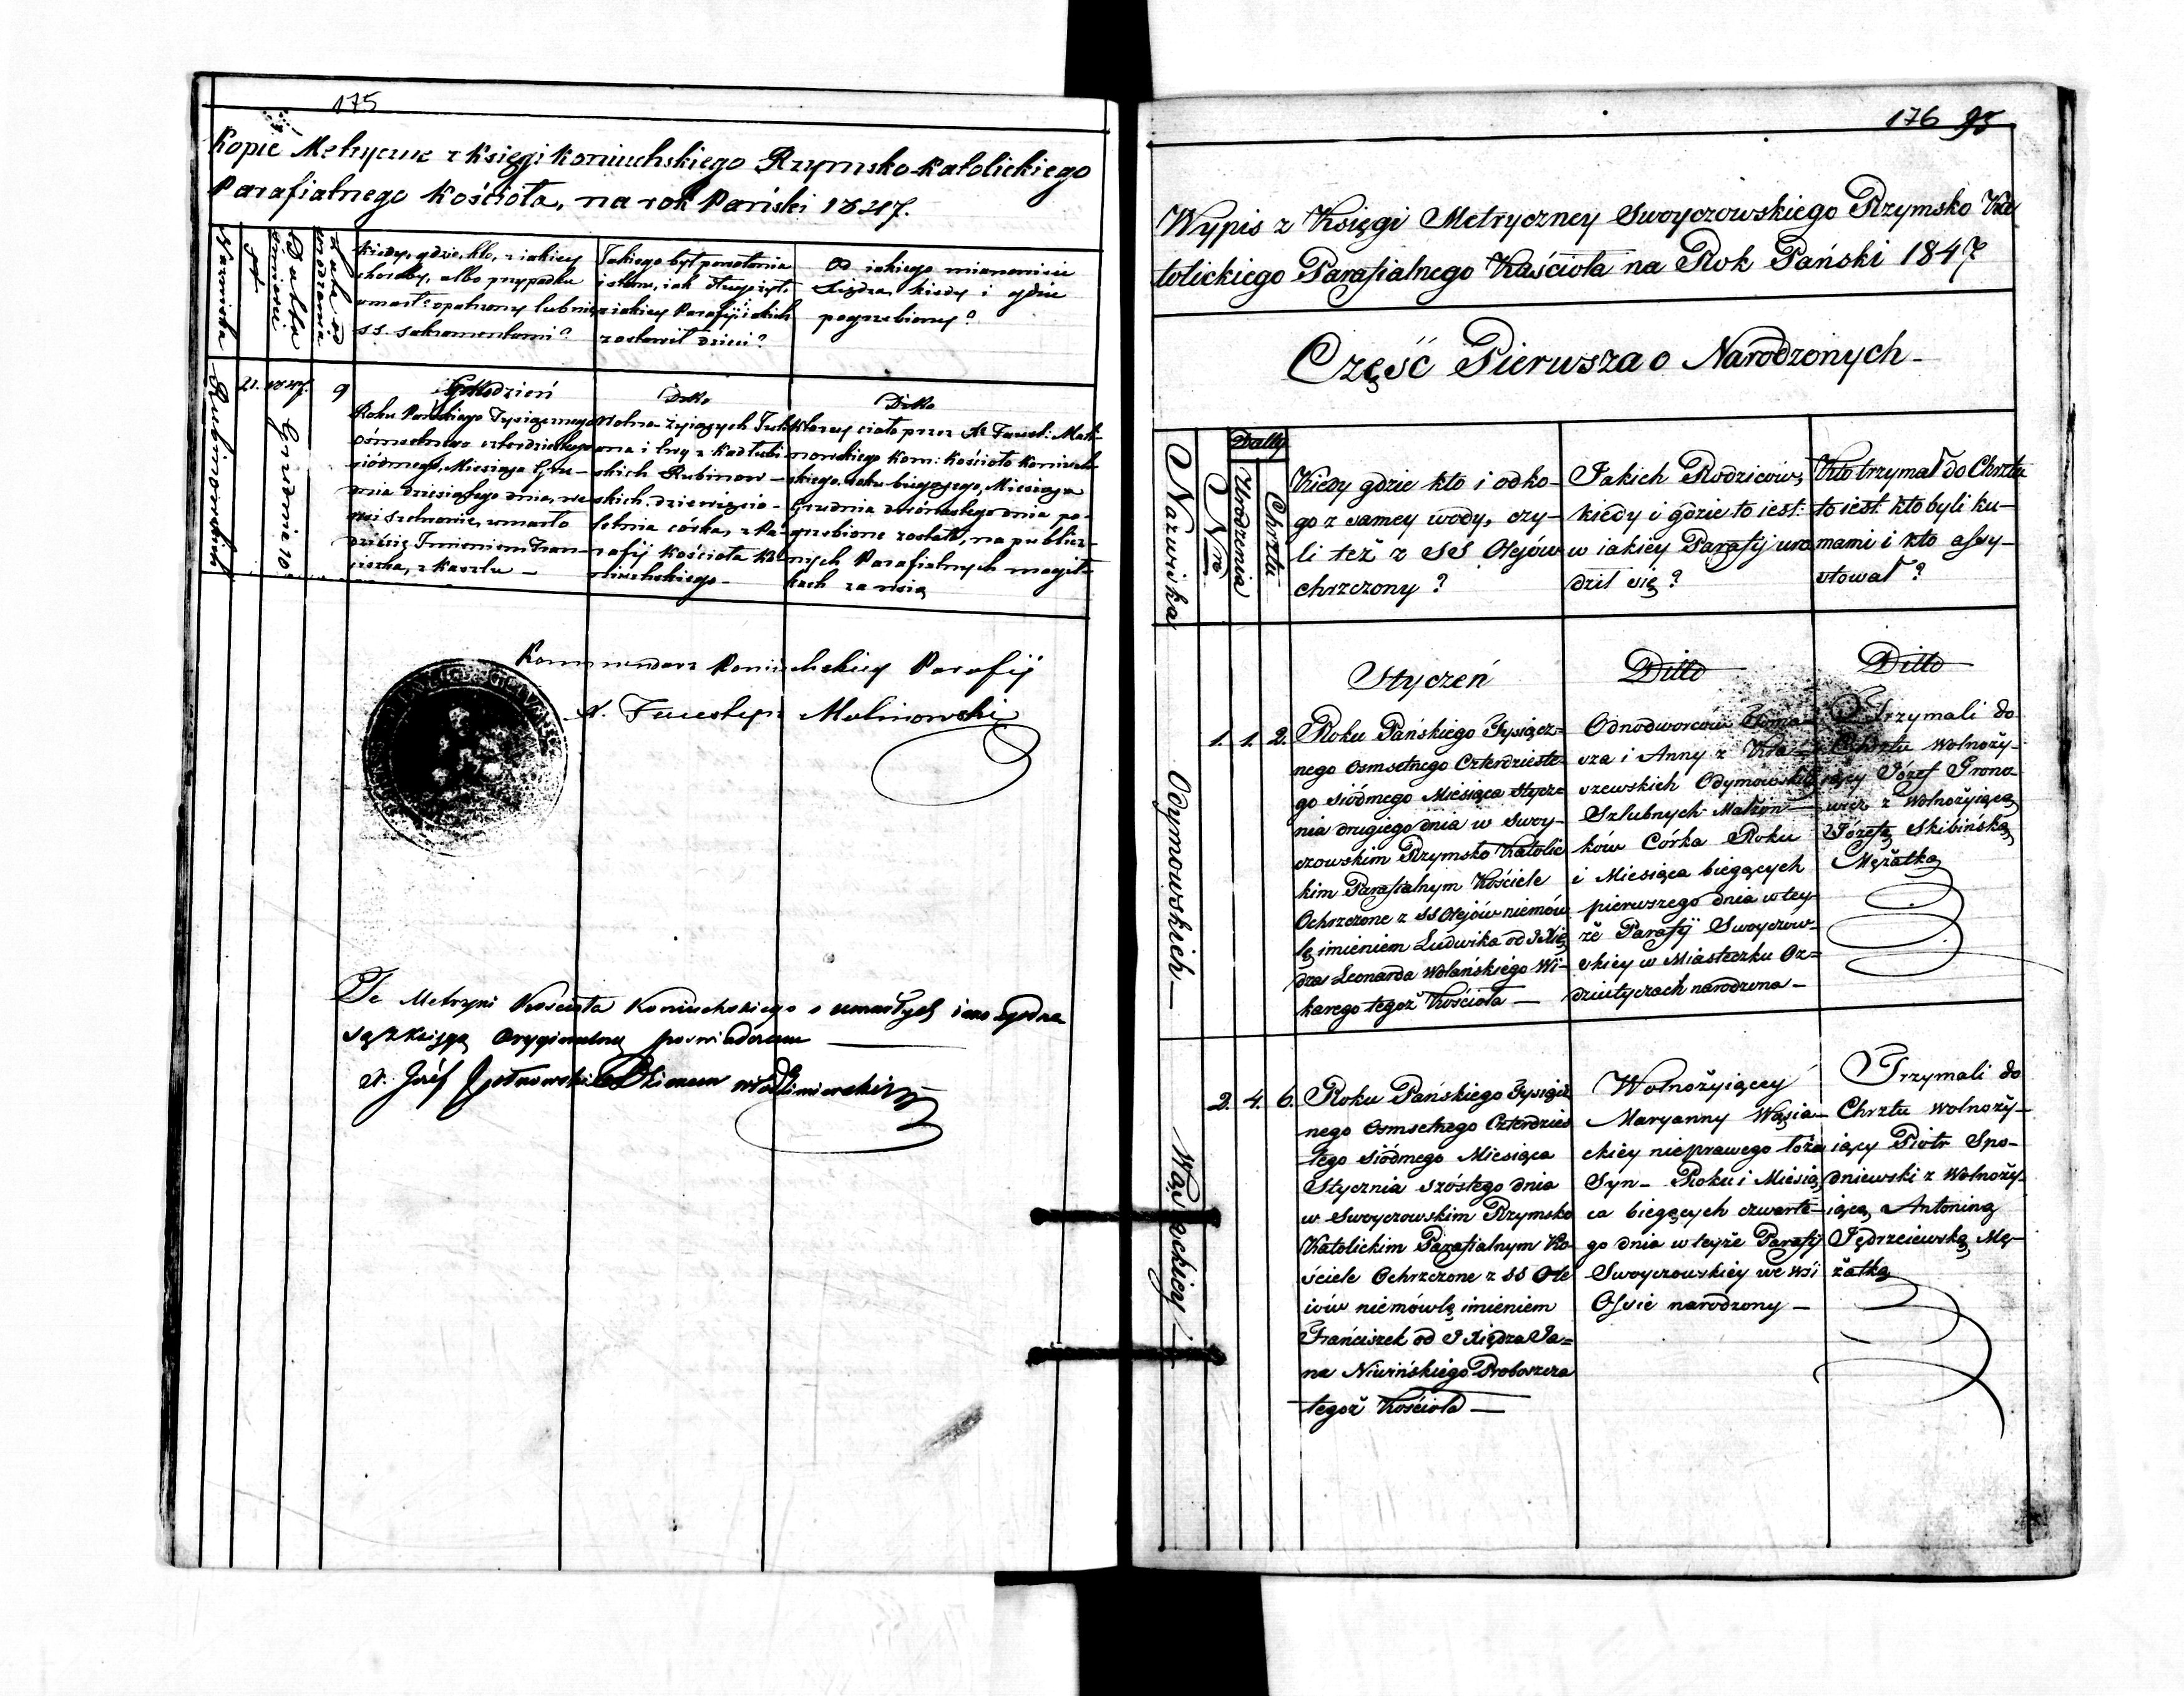 175
Kopie Metryczne z Księgi Koniuchskiego Rzymsko-Katolickiego
Parafialnego Kościoła, na rok Pański 1847.
Nazwiska
Data
śmierci
Kiedy, gdzie, kto, z iakiey
choroby, albo przypadku
umarł: opatrzony lub nie
SS. Sakramentami?
Jakiego był powołania
i stanu, iak długo żył,
z iakiey Parafji i iakich
zostawił dzieci?
Od iakiego mianowicie
Xiędza, kiedy i gdzie
pogrzebiony?
Rubinowskich
21.
1847.
Grudnia 10
9
Grudzień
Roku Pańskiego Tysiącznego
ósmsetnego czterdziestego
siódmego, Miesiąca Gru-
dnia dziesiątego dnia, we
wsi umarło
dziecię Imieniem Fran-
ciszka, z Kaszlu —
Ditto
Wolno żyiących
i Ewy z
skich Rubinow-
skich dziewięcio-
letnia córka, z Pa-
rafij Kościoła Ko-
niuchskiego —
Ditto
Którey ciało przez X. Faust: Mali-
nowskiego Kom: Kościoła Koniuch-
skiego roku biegącego, Miesiąca
Grudnia dwónastego dnia po-
grzebione zostało, na publicz-
nych Parafialnych mogił-
kach za wsią
Kommendarz Koniuchskiey Parafij
X. Faustyn Malinowski
Te Metryki Kościoła Koniuchskiego o umarłych iako zgodne
są z księgą Oryginalną poświadczam
X. Józef Dziekan Włodzimierski
176 95
Wypis z Księgi Metryczney Swoyczowskiego Rzymsko Ka
tolickiego Parafialnego Kościoła na Rok Pański 1847
Część Pierwsza o Narodzonych —
Nazwiska
Nro
Datty
Urodzenia
Chrztu
Kiedy gdzie kto i od ko-
go z samey wody, czy-
li też z SS Olejów
chrzczony?
Jakich Rodziców,
kiedy i gdzie to iest:
w iakiey Parafij uro
dził się?
Kto trzymał do Chrztu
to iest kto byli ku-
mami i kto assy-
stował?
Odymowskich —
1.
1.
2.
Styczeń
Roku Pańskiego Tysiącz-
nego Osmsetnego Czterdzieste-
go siódmego Miesiąca Stycz-
nia drugiego dnia w Swoy-
czowskim Rzymsko Katolic
kim Parafialnym Kościele
Ochrzczone z SS Olejów niemów
lę imieniem Ludwika od J Xię
dza Leonarda Wolańskiego Wi-
karego tegoż Kościoła —
Ditto
Odnodworców Toma-
sza i Anny z
szewskich Odymowskich
Szlubnych Małżon-
ków Córka Roku
i Miesiąca biegących
pierwszego dnia w tey
że Parafij Swoyczow-
skiey w Miasteczku Oz-
dziutyczach narodzona —
Ditto
Trzymali do
Chrztu wolnoży-
iący Józef Grono-
wicz z Wolnożyiącą
Józefą Skibińską
Mężatką
Wąsackiey —
2.
4.
6.
Roku Pańskiego Tysiącz
nego Osmsetnego Czterdzies
tego siódmego Miesiąca
Stycznia szóstego dnia
w Swoyczowskim Rzymsko
Katolickim Parafialnym Ko-
ściele Ochrzczone z SS Ole
iów niemówlę imieniem
Franciszek od J Xiędza Ja-
na Niwińskiego Proboszcza
tegoż Kościoła —
Wolnożyiącey
Maryanny Wąsia-
ckiey nieprawego łoża
Syn — Roku i Miesią
ca biegących czwarte-
go dnia w teyże Parafij
Swoyczowskiey we Wsi
Ossie narodzony —
Trzymali do
Chrztu wolnoży-
iący Piotr Spo-
dniewski z Wolnoży-
iącą Antoniną
Jędrzeiewską Mę-
żatką